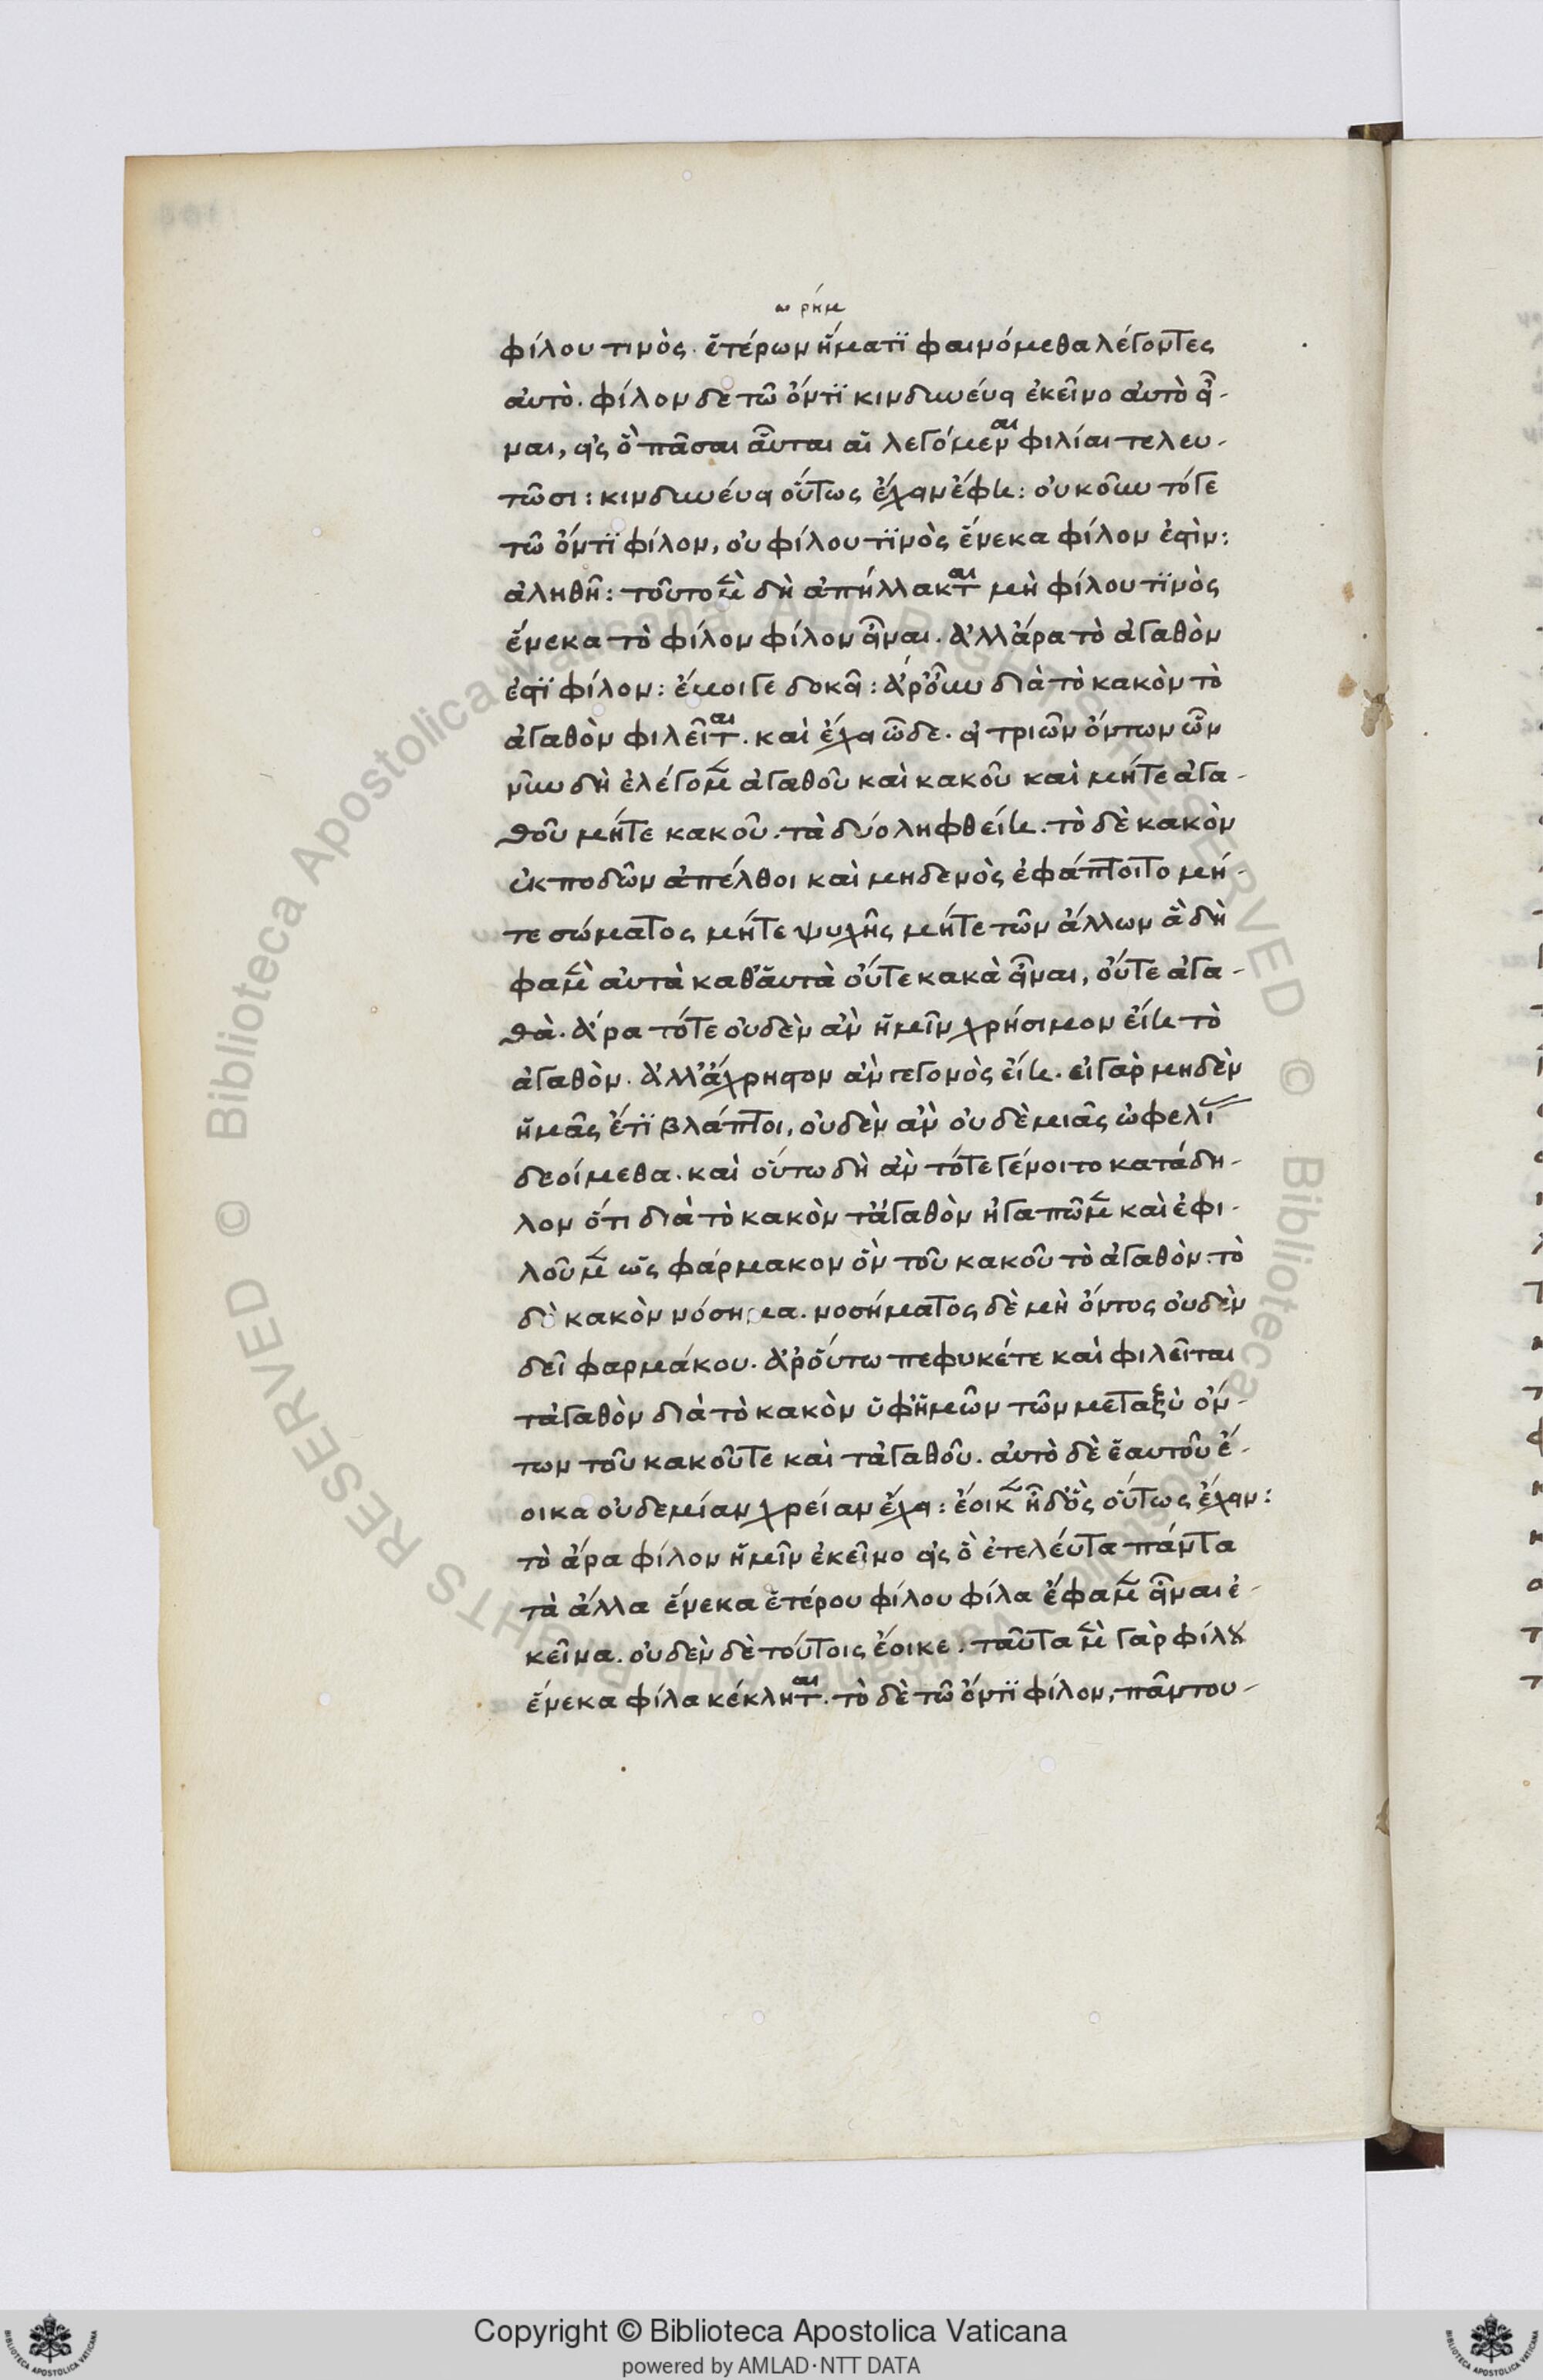 ω ρήμ
φίλου τινὸς. ἑτέρων ἥματϊ φαινόμεθα λέγοντες
αὐτό. φίλον δὲ τῶ ὄντϊ κινδυνεύει ἐκεῖνο αὐτὸ εἶ-
ναι, εἰς ὃ πᾶσαι αὗται αἱ λεγόμεναι φιλίαι τελευ-
τῶσι: κινδυνεύει οὕτως ἔχειν ἔφη: οὐκοῦν τόγε
τῶ ὄντϊ φίλον, οὐ φίλου τϊνὸς ἕνεκα φίλον ἐστὶν:
ἀληθῆ: τοῦτο μὲν δὴ ἀπήλλακται μὴ φίλου τϊνὸς
ἕνεκα τὸ φίλον φίλον εἶναι. ἀλλ' ἄρα τὸ ἀγαθὸν
ἐστϊ φίλον: ἔμοιγε δοκεῖ: ἆρ' οὖν διὰ τὸ κακὸν τὸ
ἀγαθὸν φιλεῖται. καὶ ἔχει ὧδε. εἰ τριῶν ὄντων ὧν
νῦν δὴ ἐλέγομεν ἀγαθοῦ καὶ κακοῦ καὶ μήτε ἀγα-
θοῦ μήτε κακοῦ. τὰ δύο ληφθείη. τὸ δὲ κακὸν
ἐκποδῶν ἀπέλθοι καὶ μηδενὸς ἐφάπτοιτο μή-
τε σώματος μήτε ψυχῆς μήτε τῶν ἄλλων ἃ δὴ
φαμὲν αὐτὰ καθ' αὑτὰ οὔτε κακὰ εἶναι, οὔτε ἀγα-
θὰ. ἆρα τότε οὐδὲν ἂν ἡμῖν χρήσιμον εἴη τὸ
ἀγαθὸν. ἀλλ' ἄχρηστον ἂν γεγονὸς εἴη. εἰ γὰρ μηδὲν
ἡμᾶς ἔτϊ βλάπτοι, οὐδὲν ἂν οὐδὲ μιᾶς ὠφελίας
δεοίμεθα. καὶ οὕτω δὴ ἂν τότε γένοιτο κατάδη-
λον ὅτι διὰ τὸ κακὸν τἀγαθὸν ἠγαπῶμεν καὶ ἐφι-
λοῦμεν ὡς φάρμακον ὂν τοῦ κακοῦ τὸ ἀγαθὸν. τὸ
δὲ κακὸν νόσημα. νοσήματος δὲ μὴ ὄντος οὐδὲν
δεῖ φαρμάκου. ἆρ' οὕτω πεφυκέτε καὶ φιλεῖται
τἀγαθὸν διὰ τὸ κακὸν ὑφ' ἡμῶν τῶν μεταξὺ ὄν-
των τοῦ κακοῦτε καὶ τἀγαθοῦ. αὐτὸ δὲ ἑαυτοῦ ἕ-
οικα οὐδεμίαν χρείαν ἔχει: ἔοικεν ἦ δ' ὃς οὕτως ἔχειν:
τὸ ἄρα φίλον ἡμῖν ἐκεῖνο εἰς ὃ ἐτελεύτα πάντα
τὰ ἄλλα ἕνεκα ἑτέρου φίλου φίλα ἔφαμεν εἶναι ἐ-
κεῖνα. οὐδὲν δὲ τούτοις ἔοικε. ταῦτα μὲν γὰρ φίλου
ἕνεκα φίλα κέκληται. τὸ δὲ τῶ ὄντϊ φίλον, πᾶν του-
Copyright © Biblioteca Apostolica Vaticana
powered by AMLAD·NTT DATA